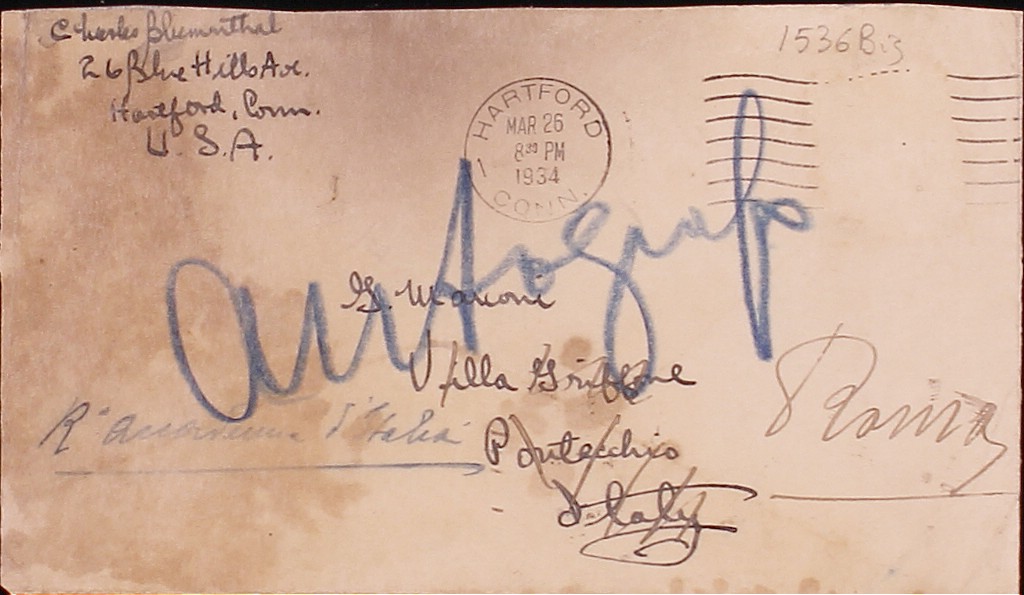 Charles Blumenthal
26 Blue Hills Ave.
Hartford, Conn.
U. S. A.
1536 Biz
HARTFORD
MAR 26
8³⁰ PM
1934
1
CONN.
autograph
G. Marconi
Villa Griffone
Pontecchio
Italy
Rª Accademia d'Italia
Roma